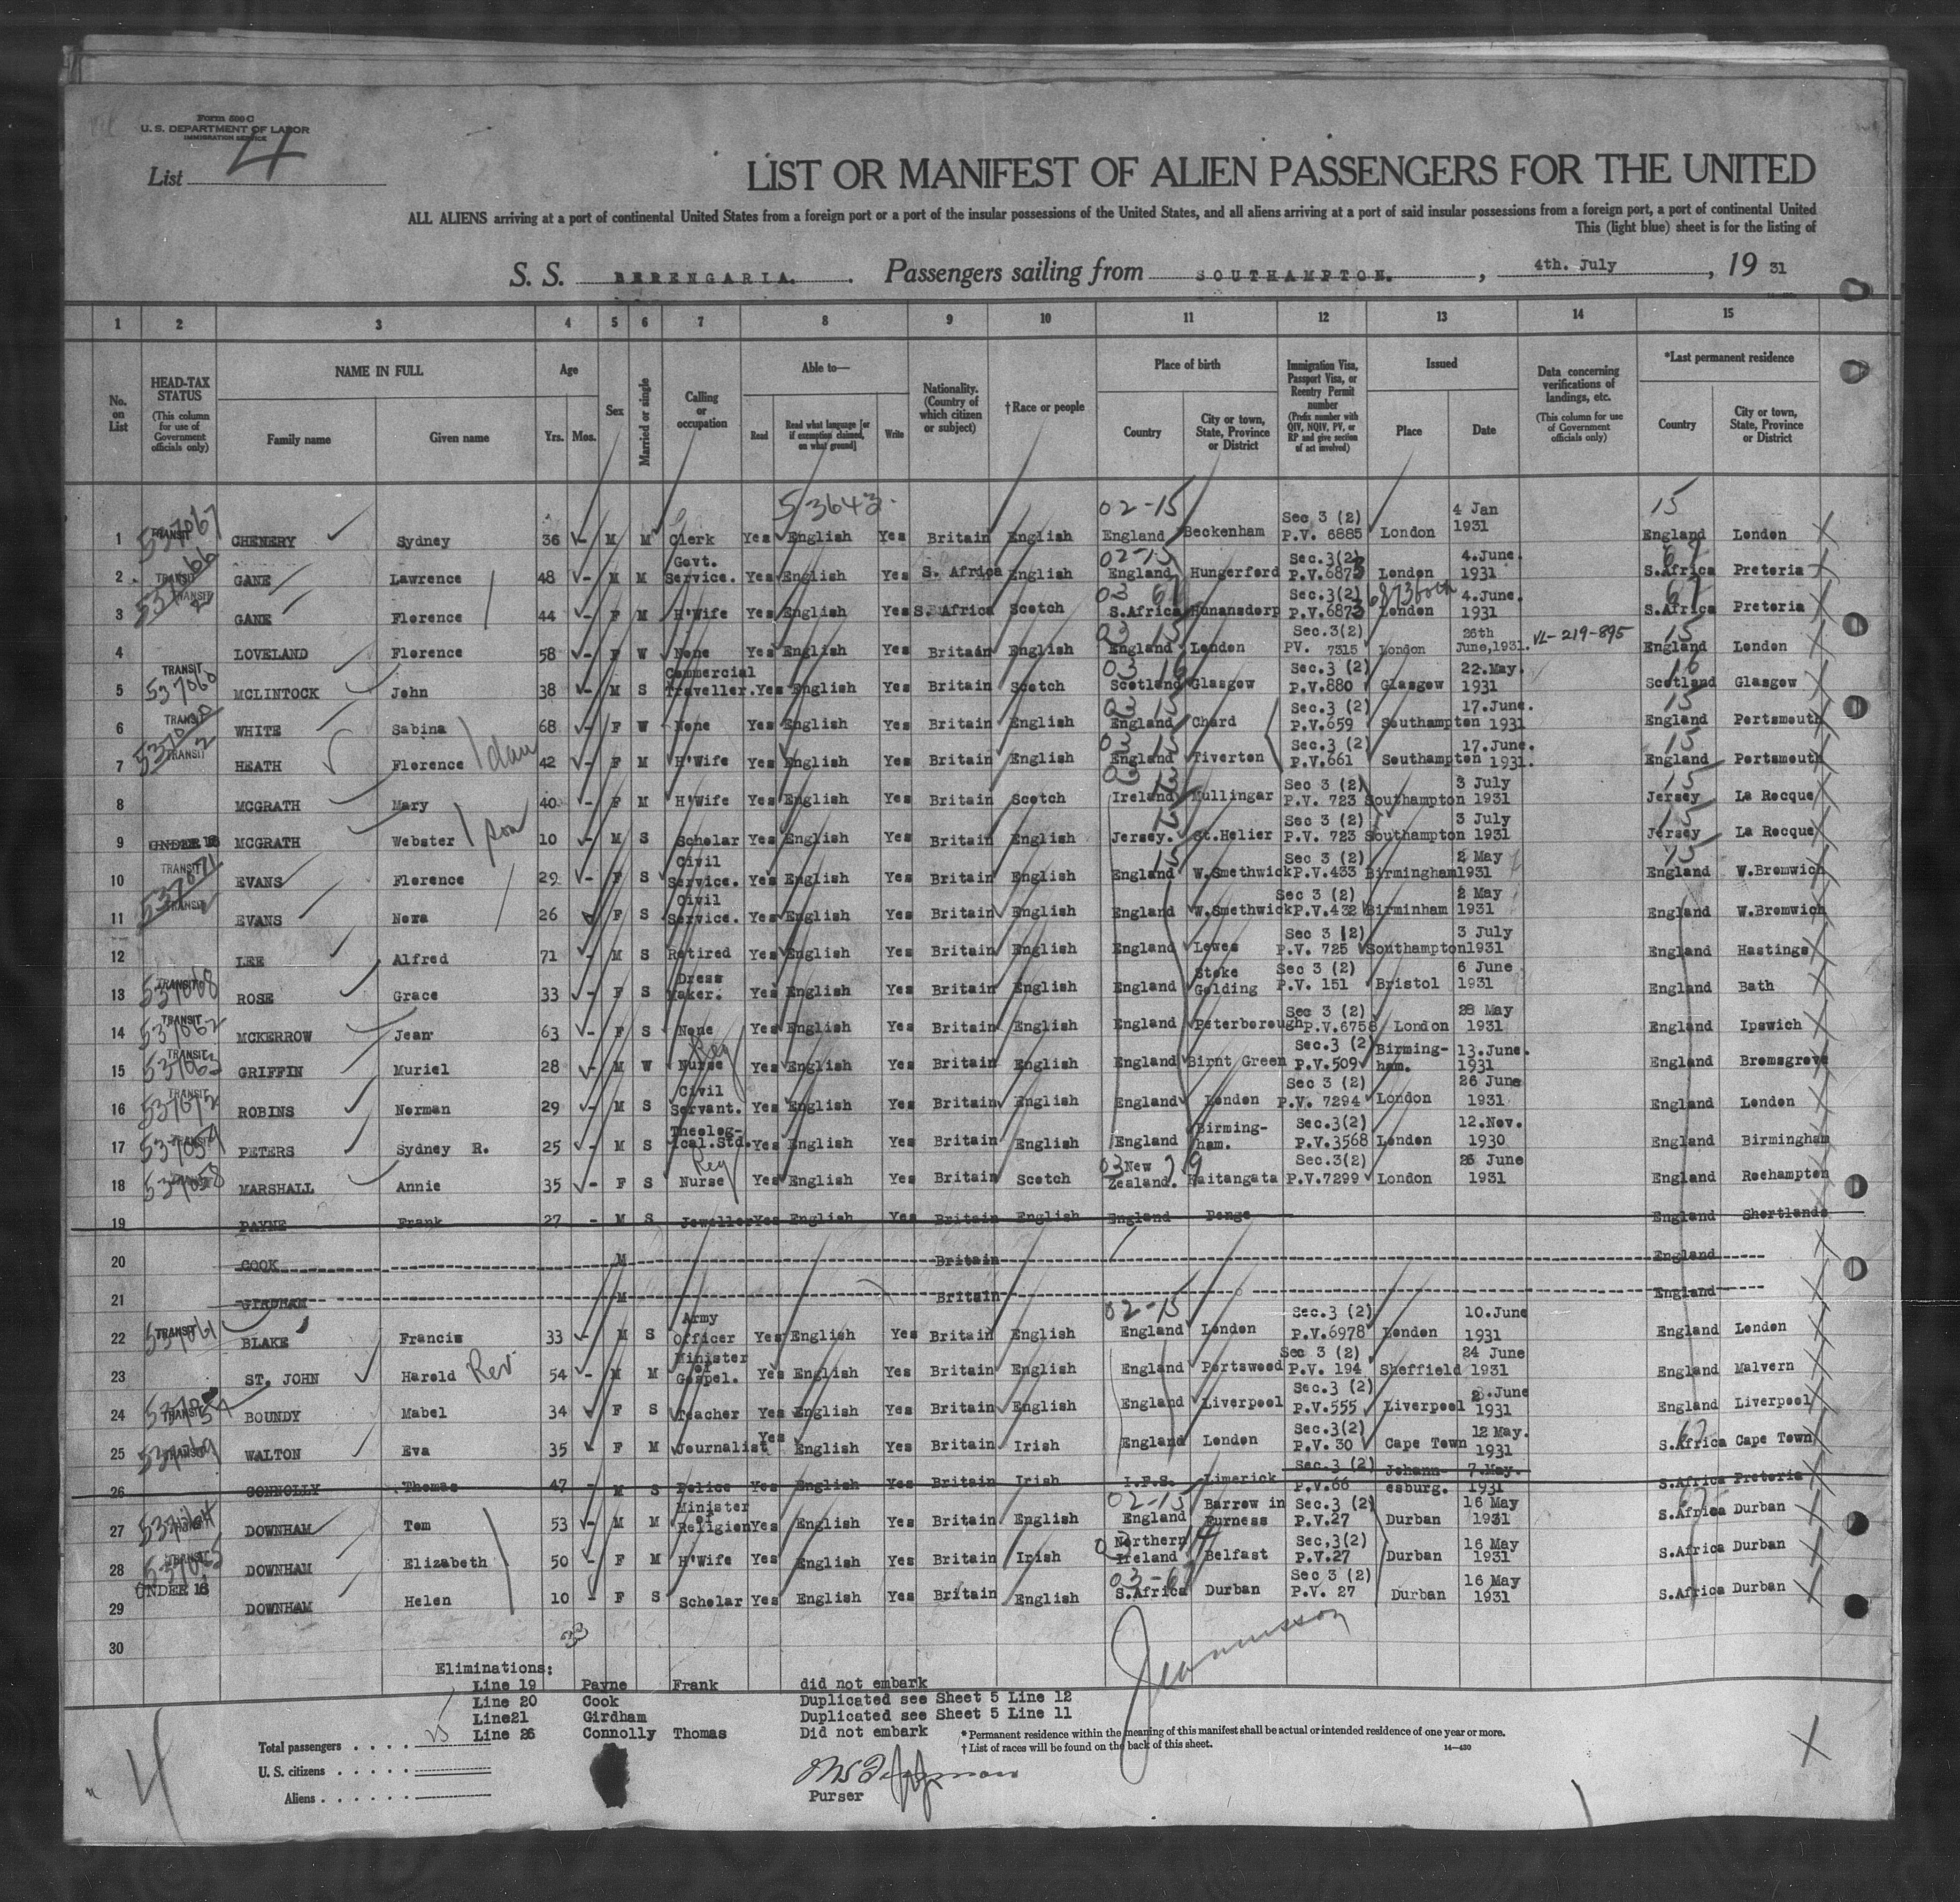 Form 500 C
U. S. DEPARTMENT OF LABOR
IMMIGRATION SERVICE
List 4
LIST OR MANIFEST OF ALIEN PASSENGERS FOR THE UNITED
ALL ALIENS arriving at a port of continental United States from a foreign port or a port of the insular possessions of the United States, and all aliens arriving at a port of said insular possessions from a foreign port, a port of continental United
This (light blue) sheet is for the listing of
S. S. BERENGARIA. Passengers sailing from SOUTHAMPTON. , 4th. July , 19 31
1 2 3 4 5 6 7 8 9 10 11 12 13 14 15
No. on List
HEAD-TAX STATUS (This column for use of Government officials only)
NAME IN FULL Family name Given name
Age Yrs. Mos.
Sex
Married or single
Calling or occupation
Able to— Read Read what language [or if exemption claimed, on what ground] Write
Nationality. (Country of which citizen or subject)
†Race or people
Place of birth Country City or town, State, Province or District
Immigration Visa, Passport Visa, or Reentry Permit number (Prefix number with QIV, NQIV, PV, or RP and give section of act involved)
Issued Place Date
Data concerning verifications of landings, etc. (This column for use of Government officials only)
*Last permanent residence Country City or town, State, Province or District
53643 02-15 15
1 TRANSIT 537067 CHENERY Sydney 36 - M M Clerk Yes English Yes Britain English England Beckenham Sec 3 (2) P.V. 6885 London 4 Jan 1931 England London
2 TRANSIT GANE Lawrence 48 - M M Govt. Service. Yes English Yes S. Africa English 02-15 England Hungerford Sec.3(2) P.V.6873 London 4.June. 1931 67 S.Africa Pretoria
3 TRANSIT GANE Florence 44 - F M H'Wife Yes English Yes S. Africa Scotch 03 67 S.Africa Hunansdorp Sec.3(2) P.V.6873 6873 both London 4.June. 1931 67 S.Africa Pretoria
4 LOVELAND Florence 58 - F W None Yes English Yes Britain English 15 England London Sec.3(2) PV. 7315 London 26th June,1931. VL-219-895 15 England London
5 TRANSIT 537060 MCLINTOCK John 38 - M S Commercial Traveller. Yes English Yes Britain Scotch 03 16 Scotland Glasgow Sec.3 (2) P.V.880 Glasgow 22.May. 1931 16 Scotland Glasgow
6 TRANSIT WHITE Sabina 68 - F W None Yes English Yes Britain English England Chard Sec.3 (2) P.V.659 Southampton 17.June. 1931 15 England Portsmouth
7 TRANSIT HEATH Florence dau 42 - F M H'Wife Yes English Yes Britain English 15 England Tiverton Sec.3 (2) P.V.661 Southampton 17.June. 1931. 15 England Portsmouth
8 MCGRATH Mary 40 - F M H'Wife Yes English Yes Britain Scotch Ireland Mullingar Sec 3 (2) P.V. 723 Southampton 3 July 1931 15 Jersey La Rocque
9 UNDER 16 MCGRATH Webster son 10 - M S Scholar Yes English Yes Britain English Jersey. St.Helier Sec 3 (2) P.V. 723 Southampton 3 July 1931 15 Jersey La Rocque
10 TRANSIT 537071 EVANS Florence 29 - F S Civil Service. Yes English Yes Britain English 15 England W.Smethwick Sec 3 (2) P.V.433 Birmingham 2 May 1931 15 England W.Bromwich
11 TRANSIT EVANS Nora 26 F S Civil Service. Yes English Yes Britain English England W.Smethwick Sec 3 (2) P.V.432 Birminham 2 May 1931 England W.Bromwich
12 LEE Alfred 71 - M S Retired Yes English Yes Britain English England Lewes Sec 3 (2) P.V. 725 Southampton 3 July 1931 England Hastings
13 TRANSIT 537068 ROSE Grace 33 - F S Dress Maker. Yes English Yes Britain English England Stoke Golding Sec 3 (2) P.V. 151 Bristol 6 June 1931 England Bath
14 TRANSIT 537062 MCKERROW Jean 63 - F S None Yes English Yes Britain English England Peterborough Sec 3 (2) P.V.6758 London 28 May 1931 England Ipswich
15 TRANSIT 537063 GRIFFIN Muriel 28 - M W Reg Nurse Yes English Yes Britain English England Birnt Green Sec.3 (2) P.V.509 Birming-ham. 13.June. 1931 England Bromsgrove
16 TRANSIT 537072 ROBINS Norman 29 - M S Civil Servant. Yes English Yes Britain English England London Sec 3 (2) P.V. 7294 London 26 June 1931 England London
17 TRANSIT 537059 PETERS Sydney R. 25 - M S Theolog-ical.Std. Yes English Yes Britain English England Birming-ham. Sec.3(2) P.V.3568 London 12.Nov. 1930 England Birmingham
18 537058 MARSHALL Annie 35 - F S Reg Nurse Yes English Yes Britain Scotch 03 New Zealand. 79 Kaitangata Sec.3(2) P.V.7299 London 26 June 1931 England Roehampton
19 PAYNE Frank 27 - M S Jeweller Yes English Yes Britain English England Penge England Shortlands
20 COOK M Britain England
21 GIRDHAM M Britain England
22 TRANSIT 537061 BLAKE Francis 33 - M S Army Officer Yes English Yes Britain English 02-15 England London Sec.3 (2) P.V.6978 London 10.June 1931 England London
23 ST. JOHN Harold Rev. 54 - M M Minister of Gospel. Yes English Yes Britain English England Portswood Sec 3 (2) P.V. 194 Sheffield 24 June 1931 England Malvern
24 TRANSIT BOUNDY Mabel 34 F S Teacher Yes English Yes Britain English England Liverpool Sec.3 (2) P.V.555 Liverpool June 1931 England Liverpool
25 TRANSIT 537069 WALTON Eva 35 F M Journalist Yes English Yes Britain Irish England London Sec.3(2) P.V. 30 Cape Town 12 May. 1931 67 S.Africa Cape Town
26 CONNOLLY Thomas 47 - M S Police Yes English Yes Britain Irish I.F.S. Limerick Sec.3 (2) P.V.66 Johann-esburg. 7.May. 1931 S.Africa Pretoria
27 537064 DOWNHAM Tom 53 - M M Minister of Religion Yes English Yes Britain English 02-15 England Barrow in Furness Sec.3 (2) P.V.27 Durban 16 May 1931 S.Africa Durban
28 TRANSIT 537065 DOWNHAM Elizabeth 50 - F M H'Wife Yes English Yes Britain Irish 03 14 Northern Ireland Belfast Sec,3(2) P.V.27 Durban 16 May 1931 S.Africa Durban
29 UNDER 16 DOWNHAM Helen 10 - F S Scholar Yes English Yes Britain English 03-67 S.Africa Durban Sec 3 (2) P.V. 27 Durban 16 May 1931 S.Africa Durban
30 33
Eliminations:
Line 19 Payne Frank did not embark
Line 20 Cook Duplicated see Sheet 5 Line 12
Line21 Girdham Duplicated see Sheet 5 Line 11
Line 26 Connolly Thomas Did not embark
* Permanent residence within the meaning of this manifest shall be actual or intended residence of one year or more.
† List of races will be found on the back of this sheet.
14—430
Total passengers . . . . 25
U. S. citizens . . . . .
Aliens . . . . . .
Purser
4